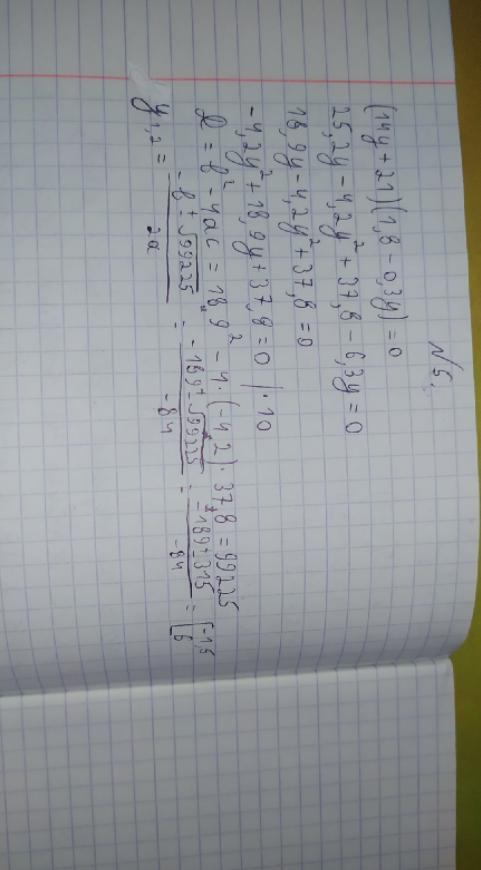 N5.
(14y + 21)(1,8 - 0,3y) = 0
25,2y - 4,2y² + 37,8 - 6,3y = 0
18,9y - 4,2y² + 37,8 = 0
-4,2y² + 18,9y + 37,8 = 0 | · 10
D = b² - 4ac = 189² - 4 · (-42) · 378 = 99225
y₁,₂ = (-b ± √99225) / 2a = (-189 ± √99225) / -84 = (-189 ± 315) / -84 = [-1,5 6